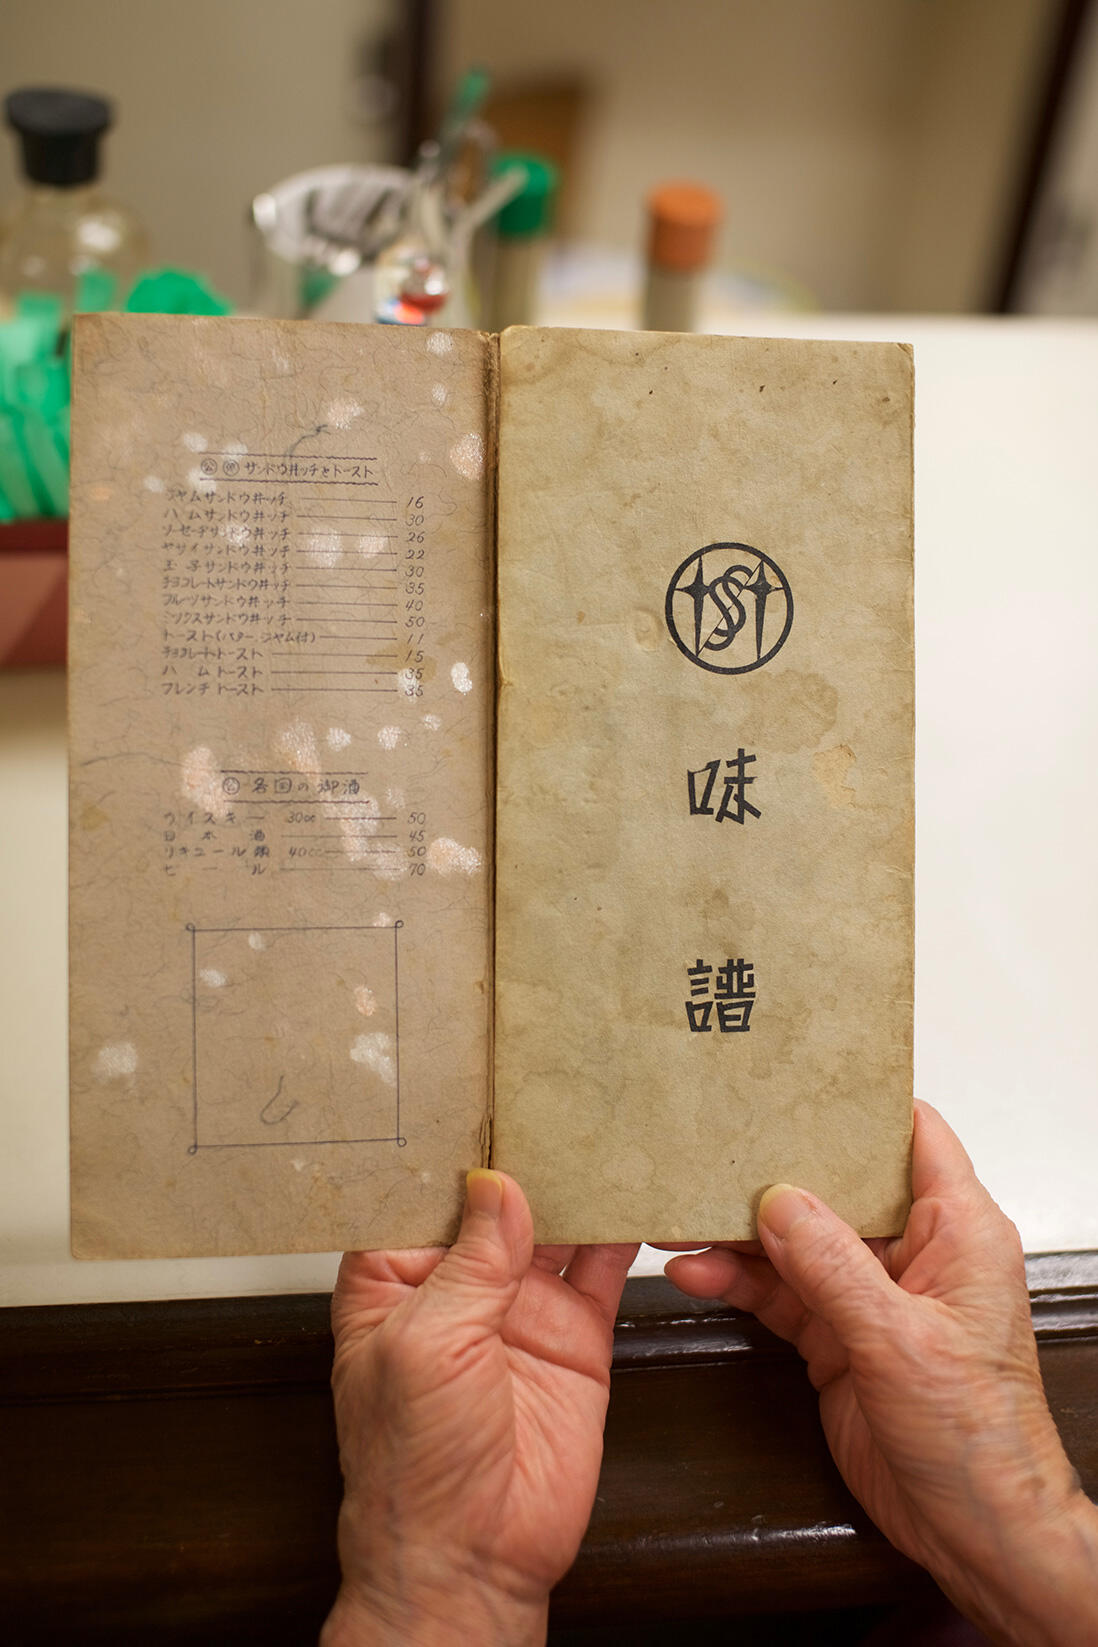 公 サンドウ井ッチとトースト
ジャムサンドウ井ッチ 16
ハムサンドウ井ッチ 30
ソーセーヂサンドウ井ッチ 26
ヤサイサンドウ井ッチ 22
玉子サンドウ井ッチ 30
チョコレートサンドウ井ッチ 35
フルーツサンドウ井ッチ 40
ミックスサンドウ井ッチ 50
トースト(バター、ジャム付) 11
チョコレートトースト 15
ハムトースト 35
フレンチトースト 35
公 各国の御酒
ウイスキー 30cc 50
日本酒 45
リキュール類 40cc 50
ビール 70
SS
味
譜